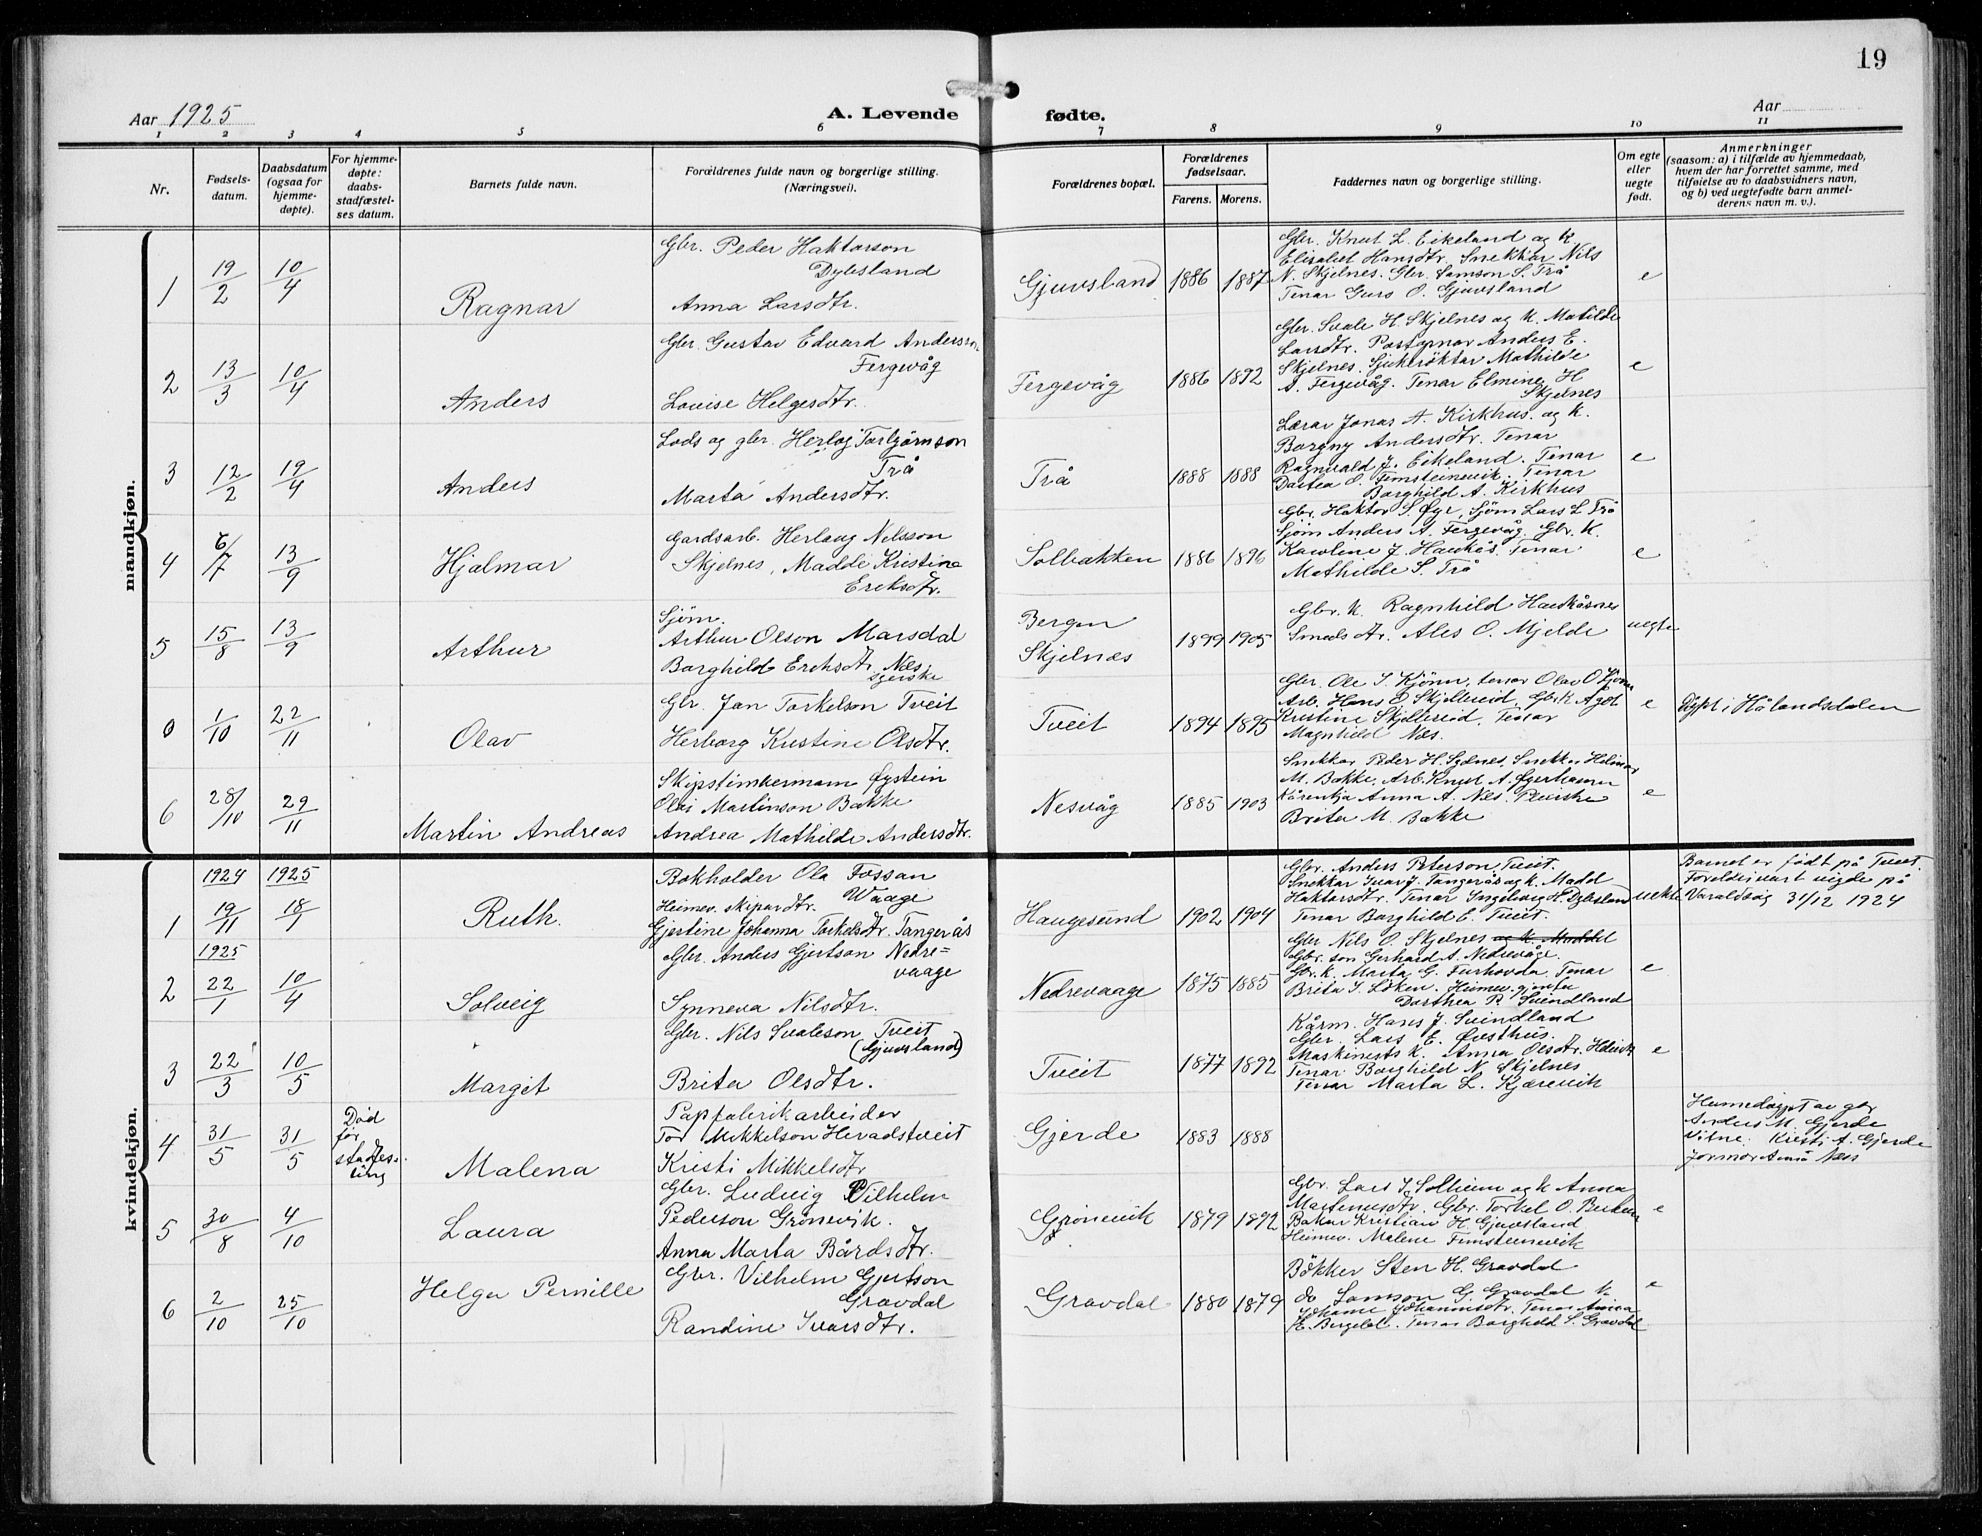 19
Aar 1925
A. Levende fødte.
Aar
1 2 3 4 5 6 7 8 9 10 11
Nr.
Fødsels-
datum.
Daabsdatum
(ogsaa for
hjemme-
døpte).
For hjemme-
døpte:
daabs-
stadfæstel-
ses datum.
Barnets fulde navn.
Forældrenes fulde navn og borgerlige stilling.
(Næringsvei).
Forældrenes bopæl.
Forældrenes
fødselsaar.
Farens. Morens.
Faddernes navn og borgerlige stilling.
Om egte
eller
uegte
født.
Anmerkninger
(saasom: a) i tilfælde av hjemmedaab,
hvem der har forrettet samme, med
tilføielse av to daabsvidners navn,
og b) ved uegtefødte barn anmel-
derens navn m. v.).
mandkjøn.
1 19/2 10/4 Ragnar
Gbr. Peder Haktorson
Dylesland
Anna Larsdtr.
Gjuvsland 1886 1887
Gbr. Knut L. Eikeland og K
Elisabet Hansdtr. Snekkar Nils
N. Skjelnes. Gbr. Samson S. Trå
Tenar Guro O. Gjuvsland
e
2 13/3 10/4 Anders
Gbr. Gustav Edvard Anderson
Fergevåg
Lovise Helgesdtr.
Fergevåg 1886 1892
Gbr. Svale H. Skjelnes og K. Matilde
Larsdtr. Postopnar Anders E.
Skjelnes. Sjukrøktar Mathilde
A. Fergevåg. Tenar Elmine H
Skjelnes
e
3 12/2 19/4 Anders
Lods og gbr. Herlog Torbjørnson
Trå
Marta Andersdtr.
Trå 1888 1888
Lærar Jonas A. Kirkhus og K.
Borgny Andersdtr. Tenar
Ragnvald J. Eikeland. Tenar
Dortea O. Fimsteinevik. Tenar
Borghild A. Kirkhus
e
4 6/7 13/9 Hjalmar
Gardsarb. Herlaug Nilsson
Skjelnes, Madde Kristine
Eriksdtr.
Solbakken 1886 1896
Gbr. Haktor S. Øyr, Sjøm Lars L. Trå
Sjøm Anders A. Fergevåg. Gbr. K.
Karoline J. Haukås. Tenar
Mathilde S. Trå
e
5 15/8 13/9 Arthur
Sjøm.
Arthur Olson Marsdal
Borghild Eriksdtr. Næs
syerske
Bergen
Skjelnæs
1899 1905
Gbr. K. Ragnhild Haukåsnes
Smedsdtr. Ales O. Mjelde
uegte
0 1/10 22/11 Olav
Gbr. Jan Torkelson Tveit
Herborg Kristine Olsdtr.
Tveit 1894 1895
Gbr. Ole T. Kjønn, tenar Olav O
Arb. Hans E Skjellereid, Gbr.K Agot
Kristine Skjellereid, Tenar
Magnhild Næs.
e
Døpt i Hålandsdalen
6 28/10 29/11 Martin Andreas
Skipstimbermann Øystein
Olai Martinson Bakke
Andrea Mathilde Andersdtr.
Nesvåg 1885 1903
Snekkar Peder H. Sydnes. Snekkar
M. Bakke. Arb. Knut A. Øgerhamn
Anna A. Næs.
Brita M. Bakke
e
kvindekjøn.
1924 1925
1 19/11 18/1 Ruth.
Bokholder Ola Fossan
Waage
Heimev. skipardtr.
Gjertine Johanna Torkelsdtr. Tangerås
Haugesund 1902 1904
Gbr. Anders Peterson Tveit.
Snekkar Ivar J. Tangerås og K. Madd
Haktorsdtr. Tenar Ingeborg H. Dylesland
Tenar Borghild E. Tveit.
uekte
Barnet er født på Tveit.
Foreldri vart vigde på
Varaldsøy 31/12 1924
1925
2 22/1 10/4 Solveig
Gbr. Anders Gjertson Nedre=
vaage
Synneva Nilsdtr.
Nedrevaage 1875 1885
Gbr Nils O. Skjelnes og K. Maddel
Gbr. son Gerhard A. Nedrevåge.
Gbr. K. Marta G. Furhovda, Tenar
Brita I. Løken. Heimev. gjenta
Dorthea P. Svindland
e
3 22/3 10/5 Margit
Gbr. Nils Svaleson Tveit
(Gjuvsland)
Brita Olsdtr.
Tveit 1877 1892
Kårm. Hans J. Svindland
Gbr. Lars E. Østhus.
Maskinists K. Anna Olsdtr.
Tenar Borghild N. Skjelnes
Tenar Marta L. Kjærevik
e
4 31/5 31/5
Død
før
stadfes-
ting
Malena
Papfabrikarbeider
Tor Mikkelson Heradstveit
Kristi Mikkelsdtr
Gjerde 1883 1888
Heimedøypt av gbr
Anders M. Gjerde
Vitne: Kristi A. Gjerde
Jormor Anna Næs
5 30/8 4/10 Laura
Gbr. Ludvig Vilhelm
Pederson Grønevik.
Anna Marta Bårdsdtr.
Grønevik 1879 1892
Gbr. Lars I. Solheim og K Anna
Martinusdtr. Gbr. Torkel O.
Bakar Kristian H. Gjuvsland
Heimev. Malene Fimsteinevik
e
6 2/10 25/10 Helga Pernille
Gbr. Vilhelm Gjertson
Gravdal
Randine Ivarsdtr.
Gravdal 1880 1879
Bøkker Sten H. Gravdal
do Samson G. Gravdal K
Johanne Johannesdtr. Tenar Anna
H. Tenar Borghild S. Gravdal
e